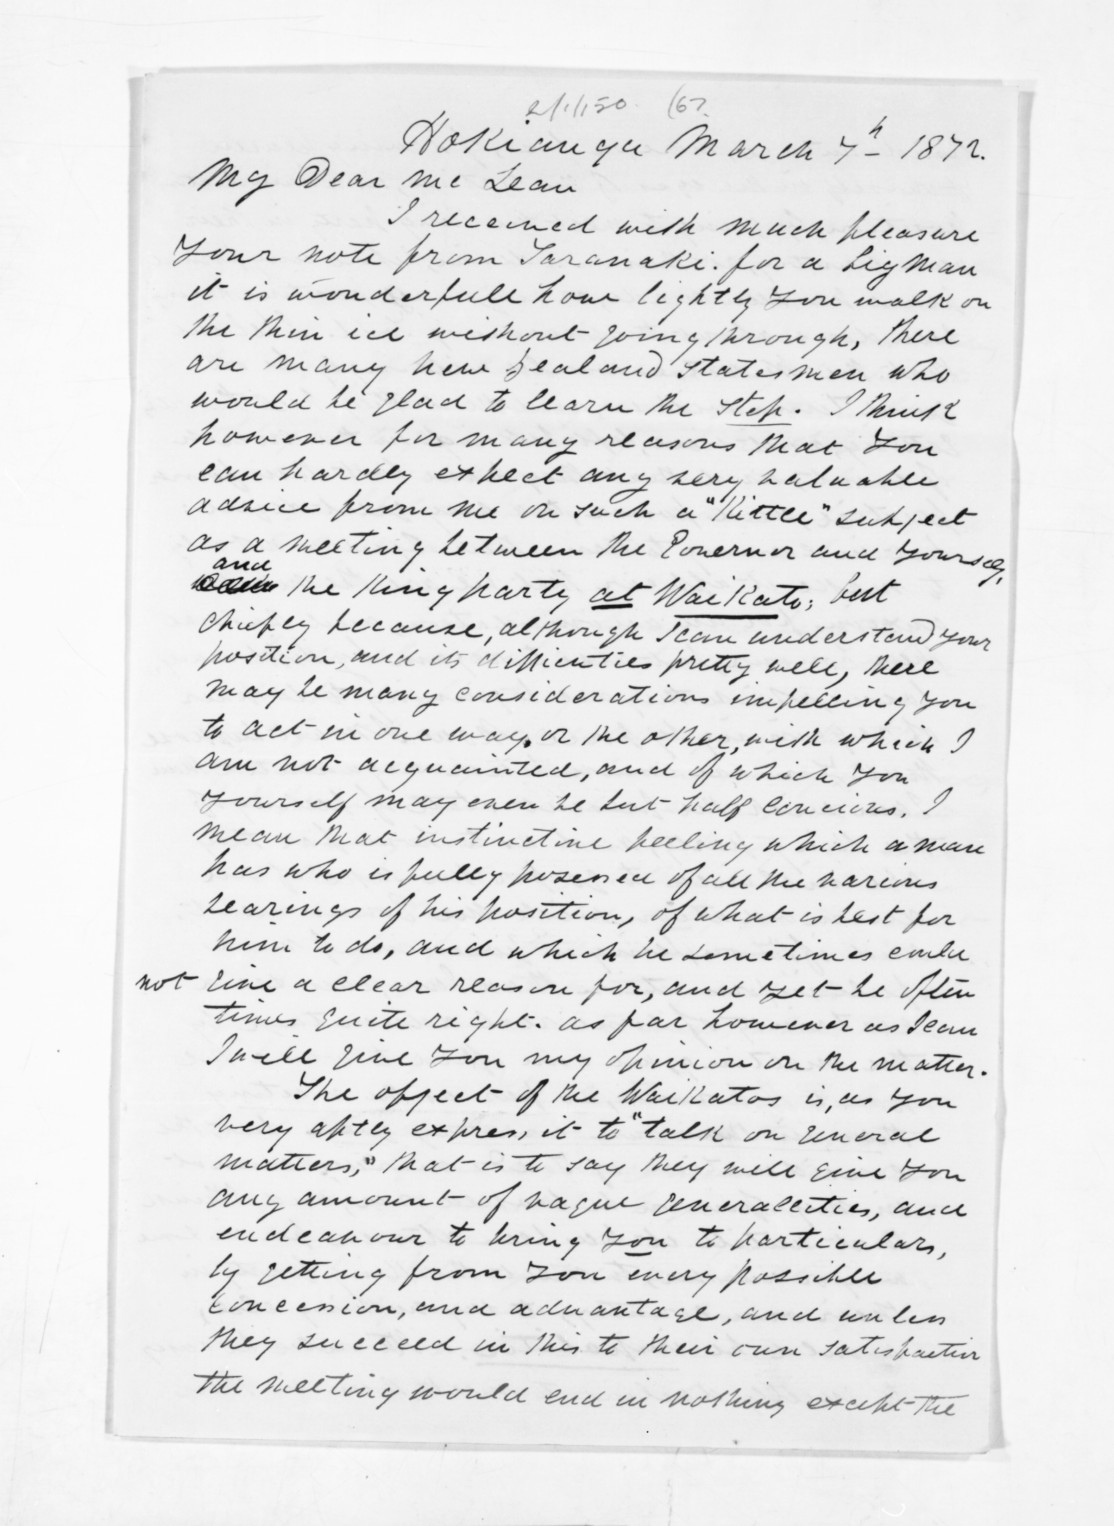 2/1/150. (67.
Hokianga March 7th 1872.
My Dear Mc Lean
I received with much pleasure
your note from Taranaki. for a big man
it is wonderfull how lightly you walk on
the thin ice without going through, there
are many New Zealand statesmen who
would be glad to learn the step. I think
however for many reasons that you
can hardly expect any very valuable
advice from me on such a "Kittle" subject
as a meeting between the Governor and yourself,
and
the King party at Waikato; but
chiefly because, although I can understand your
position, and its difficulties pretty well, there
may be many considerations impelling you
to act in one way, or the other, with which I
am not acquainted, and of which you
yourself may even be but half concious. I
mean that instinctive feeling which a man
has who is fully posessed of all the various
bearings of his position, of what is best for
him to do, and which he sometimes could
not give a clear reason for, and yet be often
times quite right. as far however as I can
I will give you my opinion on the matter.
The object of the Waikatos is, as you
very aptly express it to "talk on general
matters," that is to say they will give you
any amount of vague generallities, and
endeavour to bring you to particulars,
by getting from you every possible
concession, and advantage, and unless
they succeed in this to their own satisfaction
the meeting would end in nothing except the